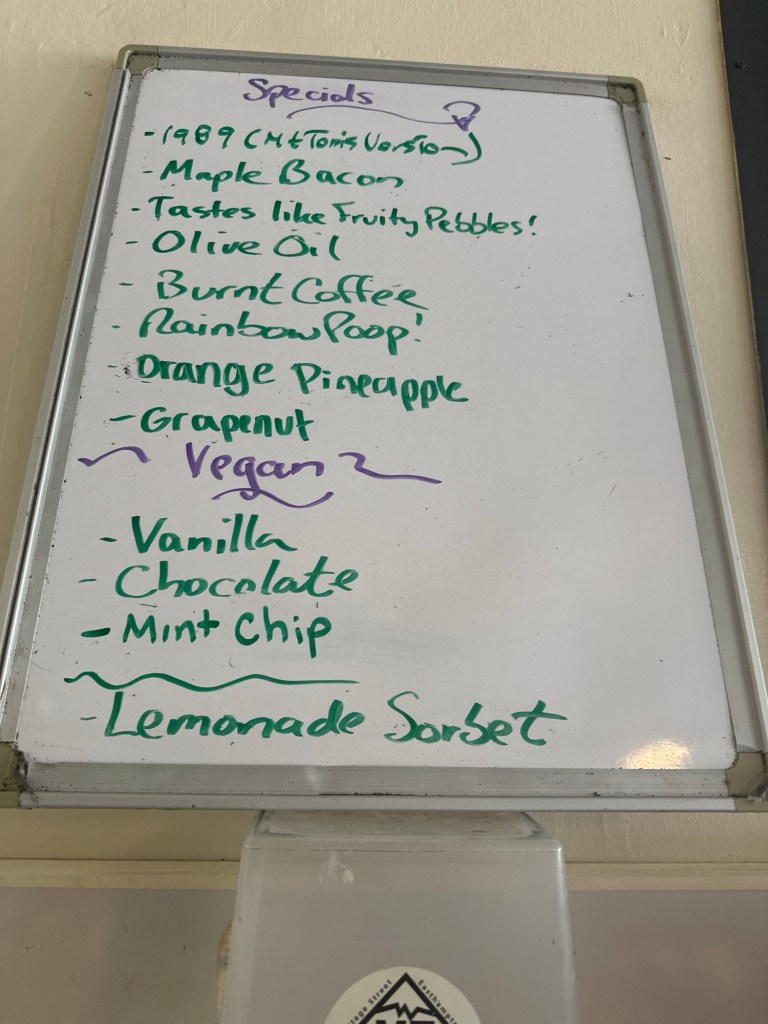 Specials
- 1989 (Mt Tom's Version)
- Maple Bacon
- Tastes like Fruity Pebbles!
- Olive Oil
- Burnt Coffee
- Rainbow Poop!
- Orange Pineapple
- Grapenut
Vegan
- Vanilla
- Chocolate
- Mint Chip
- Lemonade Sorbet